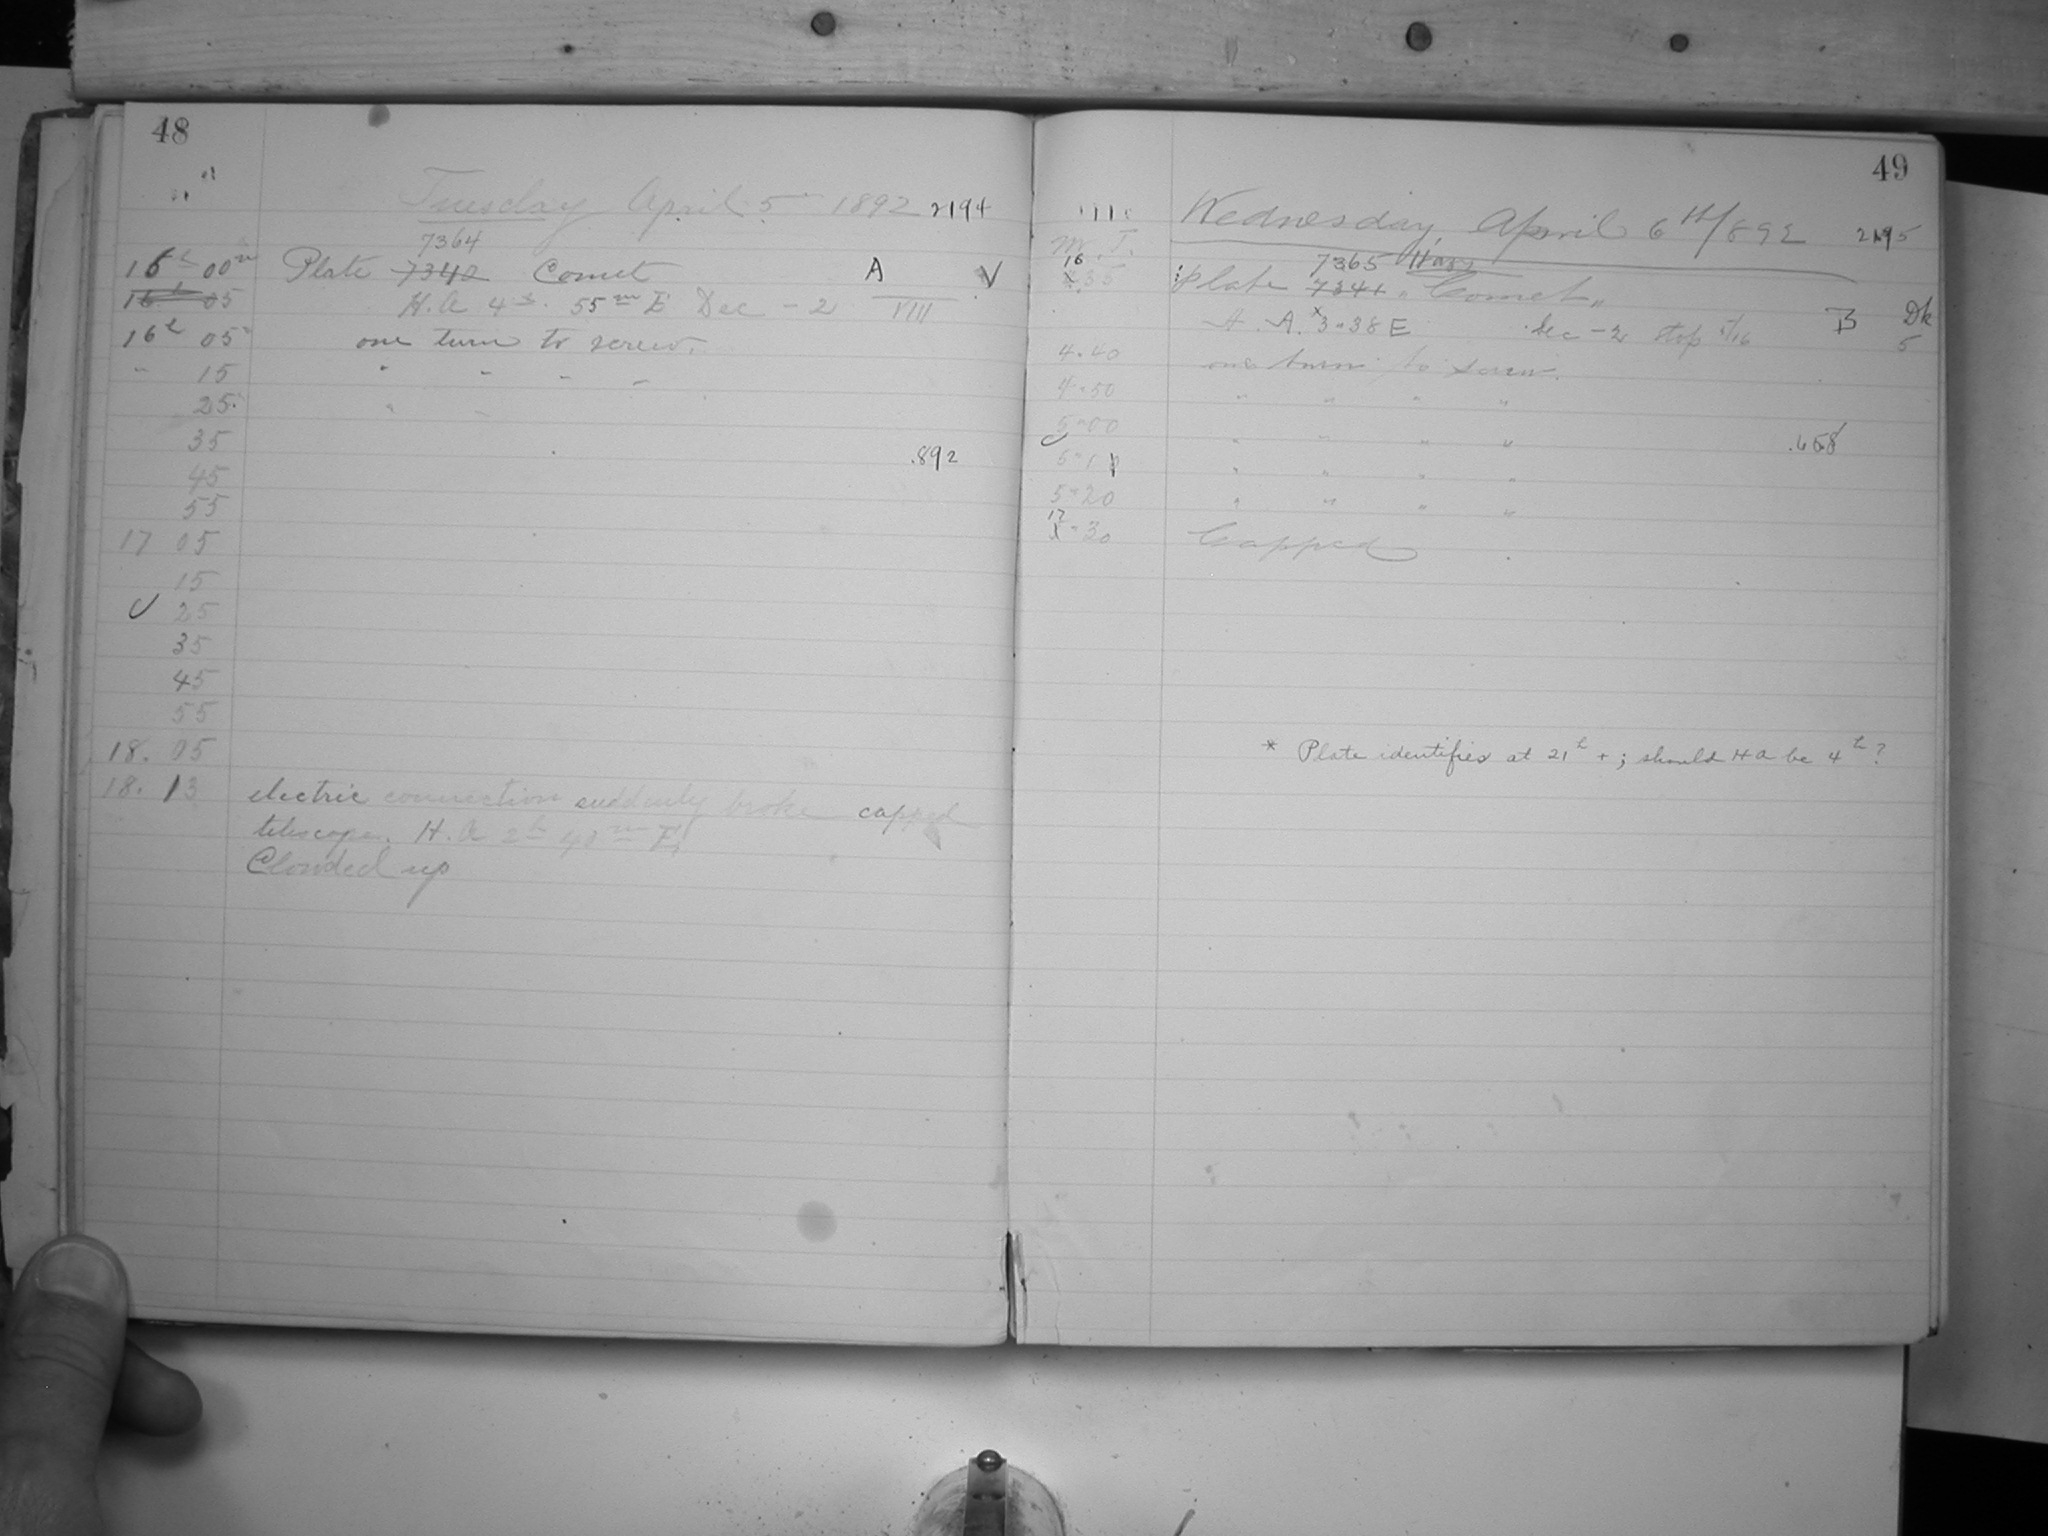 48
Tuesday April 5 1892 2194
7364
16h 00m Plate 7340 Comet A V
16h 05 H.A 4h. 55m E Dec - 2 VIII
16h 05 one turn to screw.
" 15 " " " "
25 " "
35
.892
45
55
17 05
15
25
35
45
55
18. 05
18. 13 electric connection suddenly broke capped
telescope. H.A 2h 40m E
Clouded up
49
Wednesday, April 6th/892 2195
M. T.
16 7365
35 Plate 7341 " Comet "
A. A. 3 " 38 E dec - 2 stop 5/16 B Dk
5
4.40 one turn to screw.
4 " 50 " " " "
5 " 00 " " " " .658
5 " 10 " " " "
5 " 20 " " " "
17
5 " 30 Capped
* Plate identifies at 21h + ; should H A be 4h ?